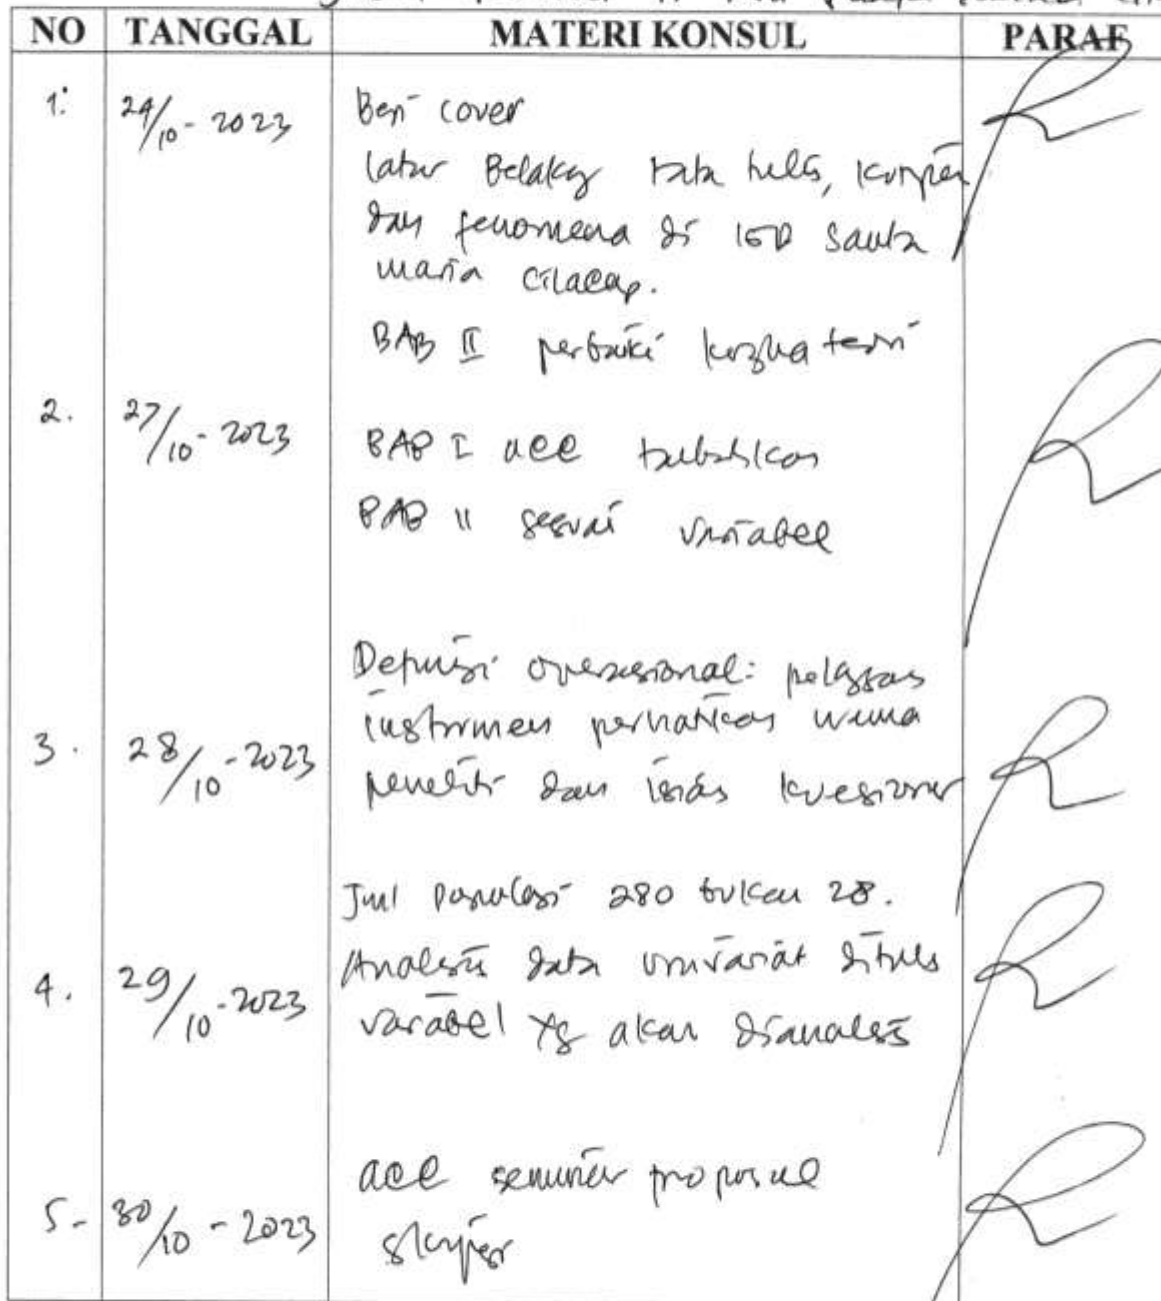 NO TANGGAL MATERI KONSUL PARAF
1. 24/10 - 2023 Beri cover
latar Belakag tata tulis,
dan fenomena di IGD Santa
maria Cilacap.
BAB II perbaiki teori
2. 27/10 - 2023 BAB I acc
BAB II sesuai variabel
Definisi operasional:
instrumen perhatikan
3. 28/10 - 2023 peneliti dan kuesioner
Jml Populasi 280 bukan 28.
4. 29/10 - 2023 Analisis data univariat ditulis
variabel yg akan dianalisis
5 - 30/10 - 2023 acc seminar proposal
skripsi